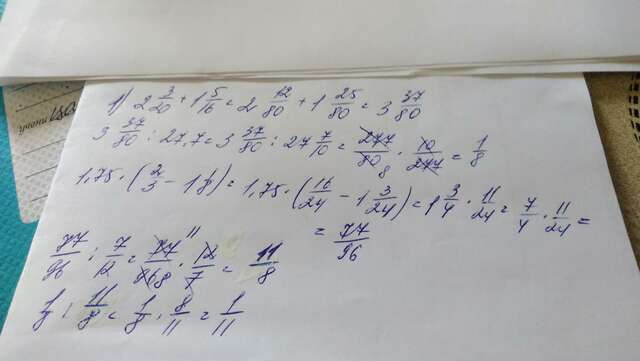 1) 2 3/20 + 1 5/16 = 2 12/80 + 1 25/80 = 3 37/80
3 37/80 : 27,7 = 3 37/80 : 27 7/10 = 277/80 8 · 10/277 = 1/8
1,75 · (2/3 - 1 1/8) = 1,75 · (16/24 - 1 3/24) = 1 3/4 · 11/24 = 7/4 · 11/24 =
= 77/96
77/96 : 7/12 = 77 11/96 8 · 12/7 = 11/8
1/8 : 11/8 = 1/8 · 8/11 = 1/11